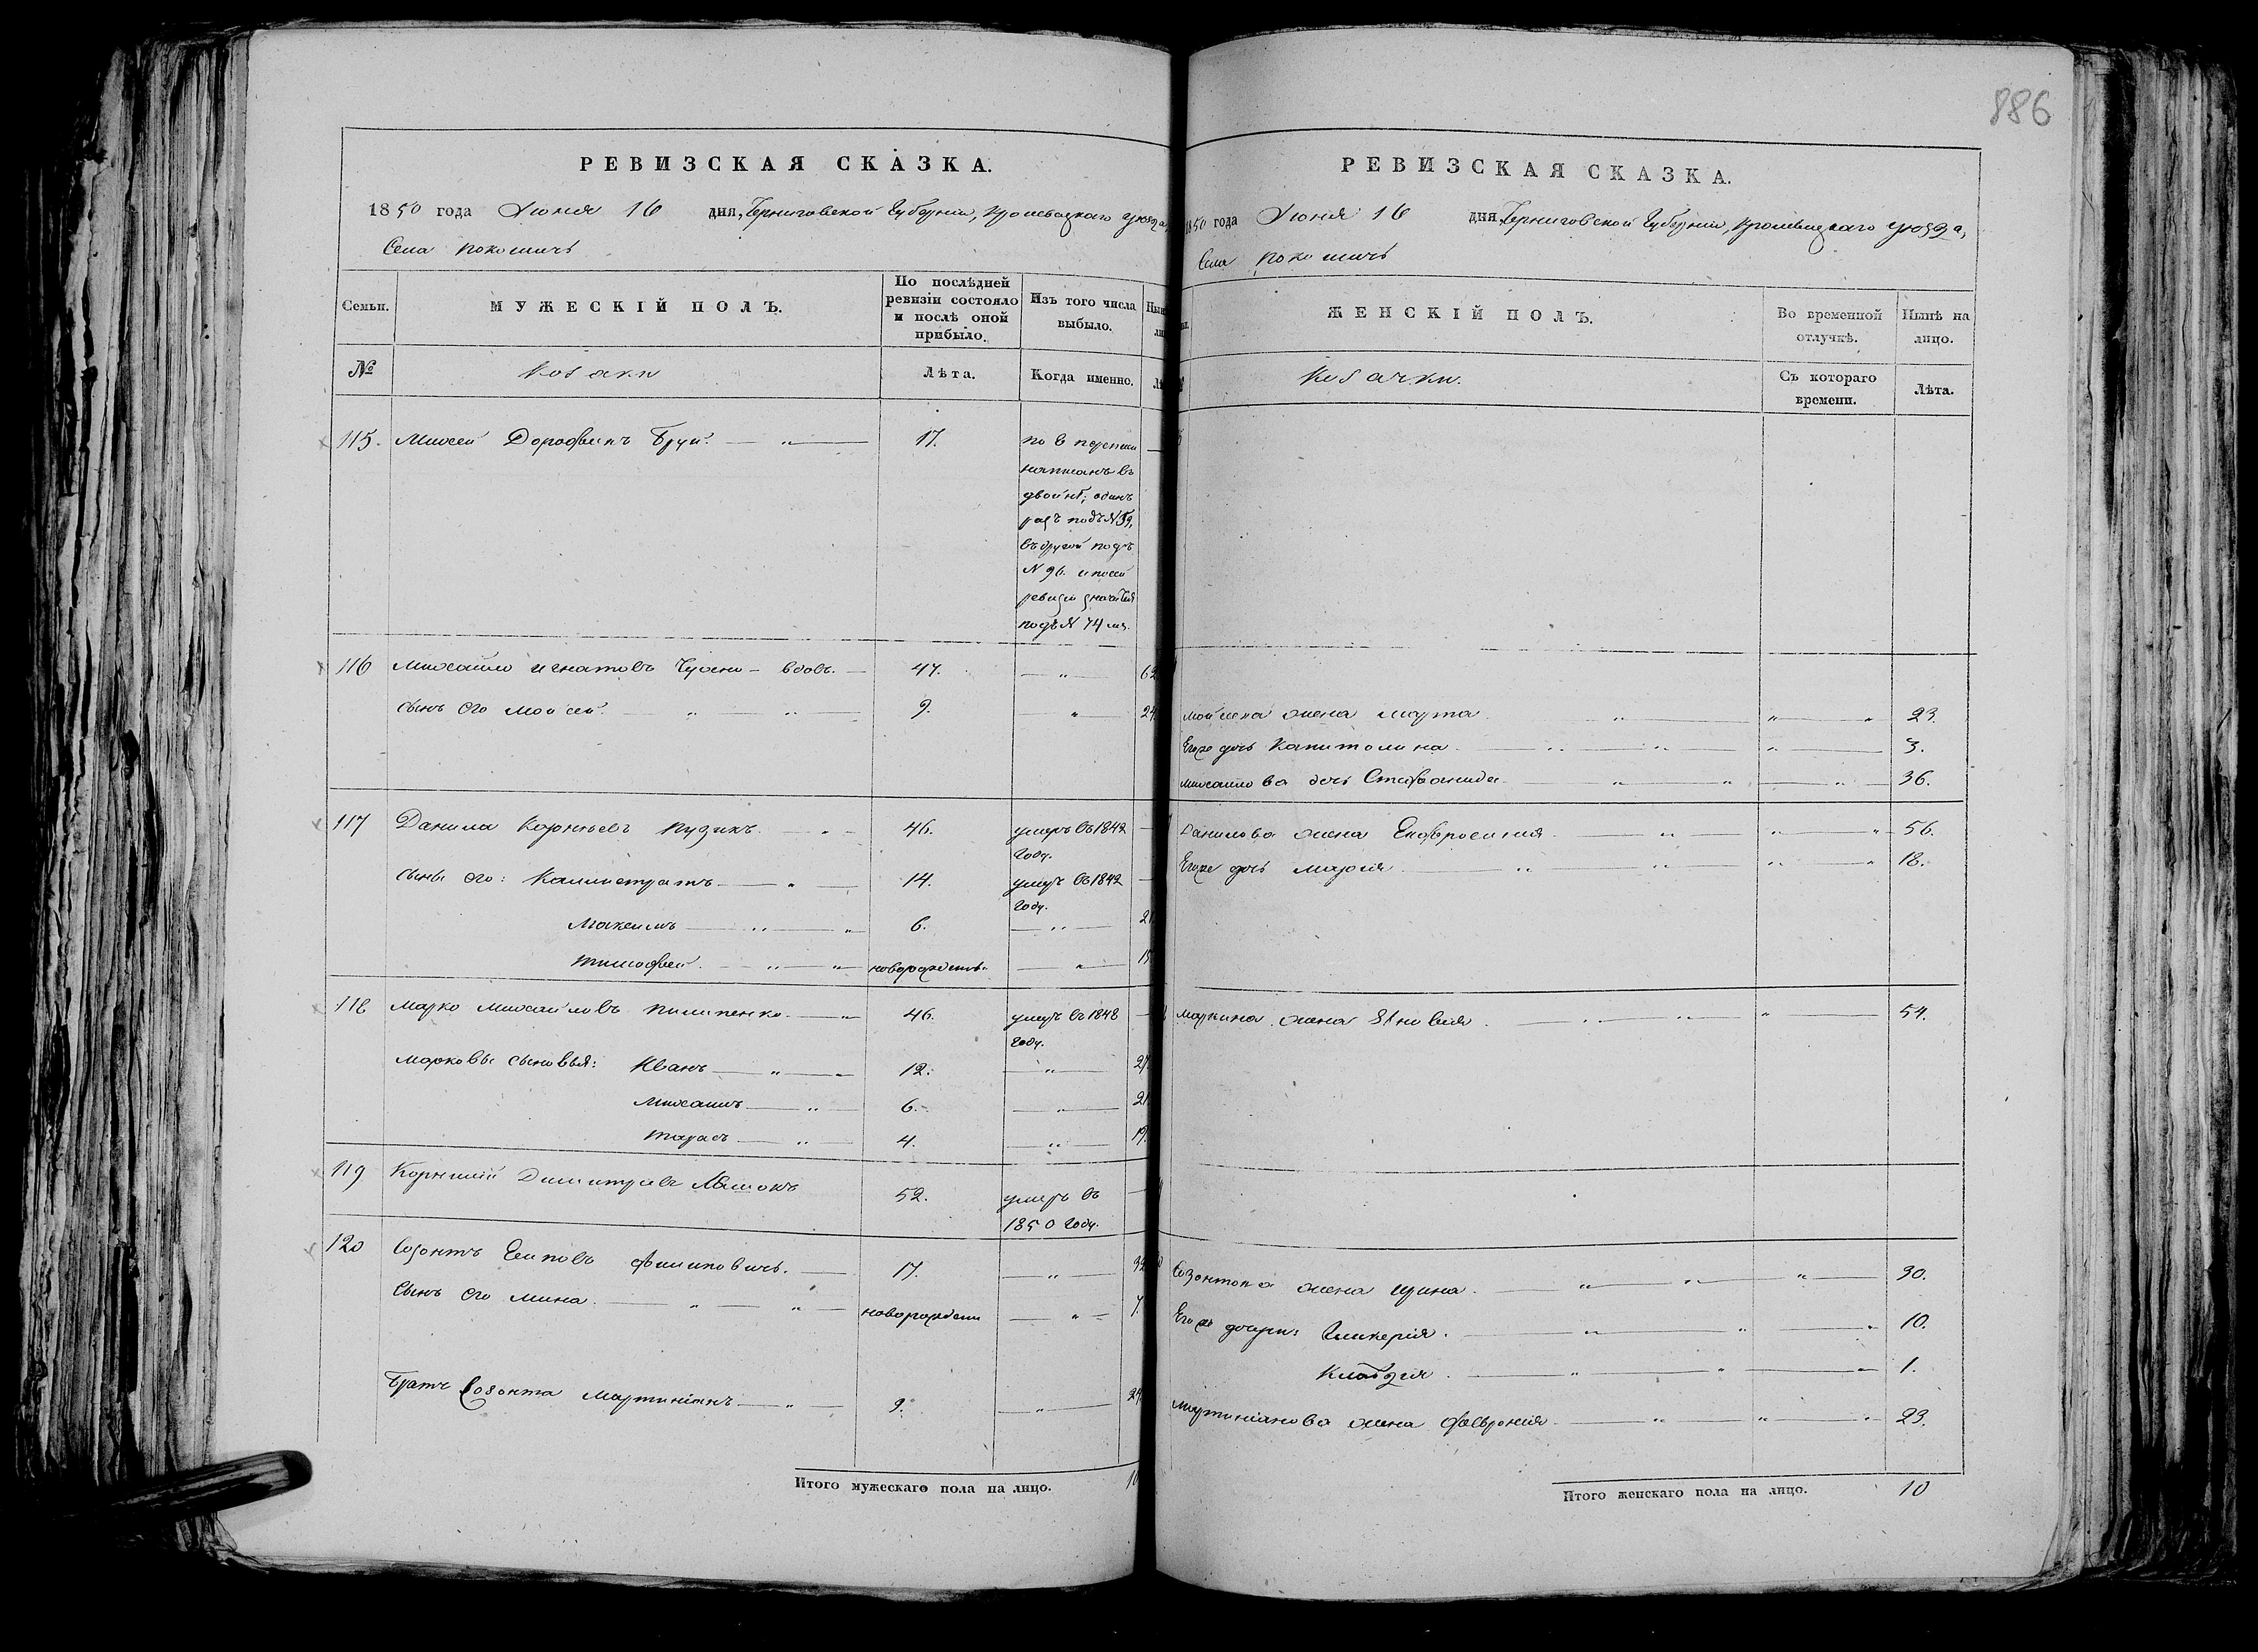 РЕВИЗСКАЯ СКАЗКА.
1850 года Июня 16 дня, Черниговской Губерніи, Кролевецкаго уѣзда,
Села Покошичь
Семьи. МУЖЕСКІЙ ПОЛЪ. По послѣдней ревизіи состояло и послѣ оной прибыло. Изъ того числа выбыло.
№ Козаки Лѣта. Когда именно.
115. Моисей Дорофеинъ Буй. 17. по 8 переписи
написанъ въ
двойнѣ; одинъ
разъ подъ N 59,
въ другой подъ
N 96. и по сей
ревизіи значится
подъ N 74 мъ.
116 Михайло Игнатовъ вдовъ. 47. 62
сынъ его Мойсей. 9. 24.
117 Данила Корнѣевъ Пузикъ. 46. умеръ въ 1842
году.
сыны его: Калистратъ 14. умеръ въ 1842
году.
Максимъ 6. 21.
Тимофей. новорожденъ. 15.
118 Марко Михайловъ Пилипенко. 46. умеръ въ 1848
году.
Марковы сыновья: Иванъ 12. 27.
Михаилъ 6. 21.
Тарасъ 4. 19.
119 Корнилій Димитріевъ 52. умеръ въ
1850 году.
120 Созонтъ Есиповъ Филиповичъ. 17. 32
сынъ его Мина. новорожден 7.
Братъ Созонта Мартиніянъ 9. 24.
Итого мужескаго пола на лицо. 10
886
РЕВИЗСКАЯ СКАЗКА.
1850 года Июня 16 дня, Черниговской Губерніи, Кролевецкаго уѣзда,
Села Покошичь
ЖЕНСКІЙ ПОЛЪ. Во временной отлучкѣ. Нынѣ на лицо.
Козачки. Съ котораго времени. Лѣта.
Мойсеева жена Марта 23.
Егоже дочь Капитолина 3.
Михайлова дочь Стефанида 36.
Данилова жена Евфросинія 56.
Егоже дочь Марфія 18.
Маркина жена 54.
Созонтова жена Ирина. 30.
Егоже дочери: Гликерія. 10.
Клавдія. 1.
Мартиніянова жена Февронія 23.
Итого женскаго пола на лицо. 10